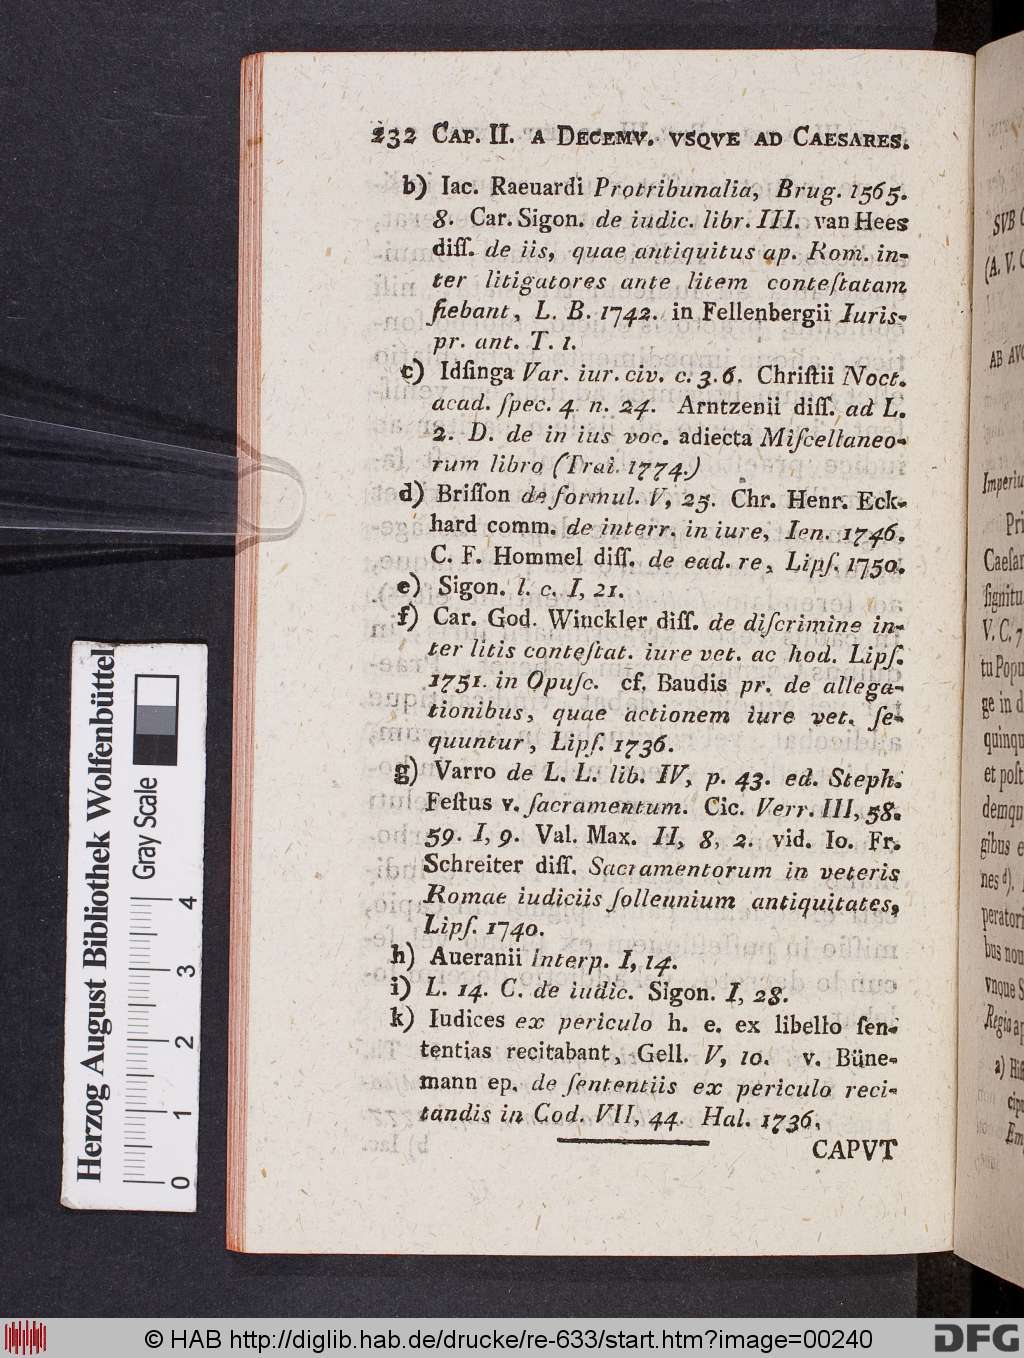 232 CAP. II. A DECEMV. VSQVE AD CAESARES.
b) Iac. Raeuardi Protribunalia, Brug. 1565.
8. Car. Sigon. de iudic. libr. III. van Hees
diſſ. de iis, quae antiquitus ap. Rom. in-
ter litigatores ante litem conteſtatam
fiebant, L. B. 1742. in Fellenbergii Iuris-
pr. ant. T. 1.
c) Idſinga Var. iur. civ. c. 3. 6. Chriſtii Noct.
acad. ſpec. 4 n. 24. Arntzenii diſſ. ad L.
2. D. de in ius voc. adiecta Miſcellaneo-
rum libro (Trai. 1774.)
d) Briſſon de formul. V, 25. Chr. Henr. Eck-
hard comm. de interr. in iure, Ien. 1746.
C. F. Hommel diſſ. de ead. re, Lipſ. 1750.
e) Sigon. l. c. I, 21.
f) Car. God. Winckler diſſ. de diſcrimine in-
ter litis conteſtat. iure vet. ac hod. Lipſ.
1751. in Opuſc. cf. Baudis pr. de allega-
tionibus, quae actionem iure vet. ſe-
quuntur, Lipſ. 1736.
g) Varro de L. L. lib. IV, p. 43. ed. Steph.
Feſtus v. ſacramentum. Cic. Verr. III, 58.
59. I, 9. Val. Max. II, 8, 2. vid. Io. Fr.
Schreiter diſſ. Sacramentorum in veteris
Romae iudiciis ſollennium antiquitates,
Lipſ. 1740.
h) Aueranii Interp. I, 14.
i) L. 14. C. de iudic. Sigon. I, 28.
k) Iudices ex periculo h. e. ex libello ſen-
tentias recitabant, Gell. V, 10. v. Büne-
mann ep. de ſententiis ex periculo reci-
tandis in Cod. VII, 44. Hal. 1736.
CAPVT
SVB
(A. V.
AB
Imperiu
Pri
Caeſar
ſignitu
V. C. 7
tu Popu
ge in d
quinqu
et poſt
demqu
gibus e
nes d).
peratori
bus non
vnque S
Regia ap
a) Hiſ
Em
Herzog August Bibliothek Wolfenbüttel
Gray Scale
0 1 2 3 4
© HAB http://diglib.hab.de/drucke/re-633/start.htm?image=00240
DFG